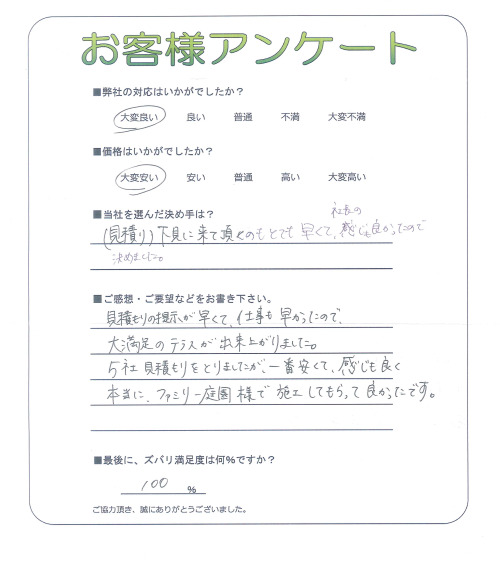 お客様アンケート
■弊社の対応はいかがでしたか？
大変良い 良い 普通 不満 大変不満
■価格はいかがでしたか？
大変安い 安い 普通 高い 大変高い
■当社を選んだ決め手は？
社長の
(見積り)下見に来て頂くのもとても早くて、感じも良かったので
決めました。
■ご感想・ご要望などをお書き下さい。
見積もりの提示が早くて、仕事も早かったので、
大満足のテラスが出来上がりました。
5社見積もりをとりましたが、一番安くて、感じも良く
本当に、ファミリー庭園様で施工してもらって良かったです。
■最後に、ズバリ満足度は何％ですか？
100 ％
ご協力頂き、誠にありがとうございました。